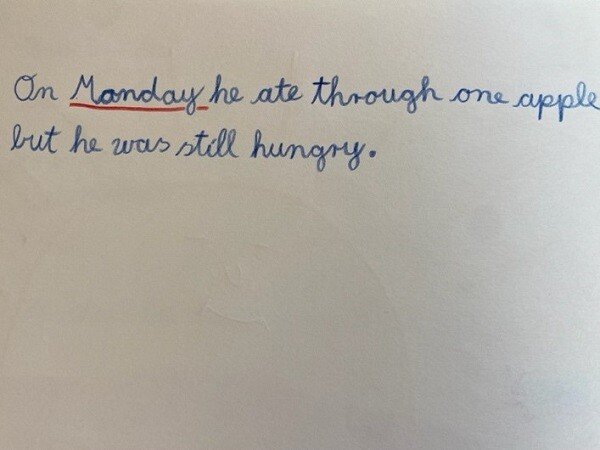 On Manday he ate through one apple
but he was still hungry.